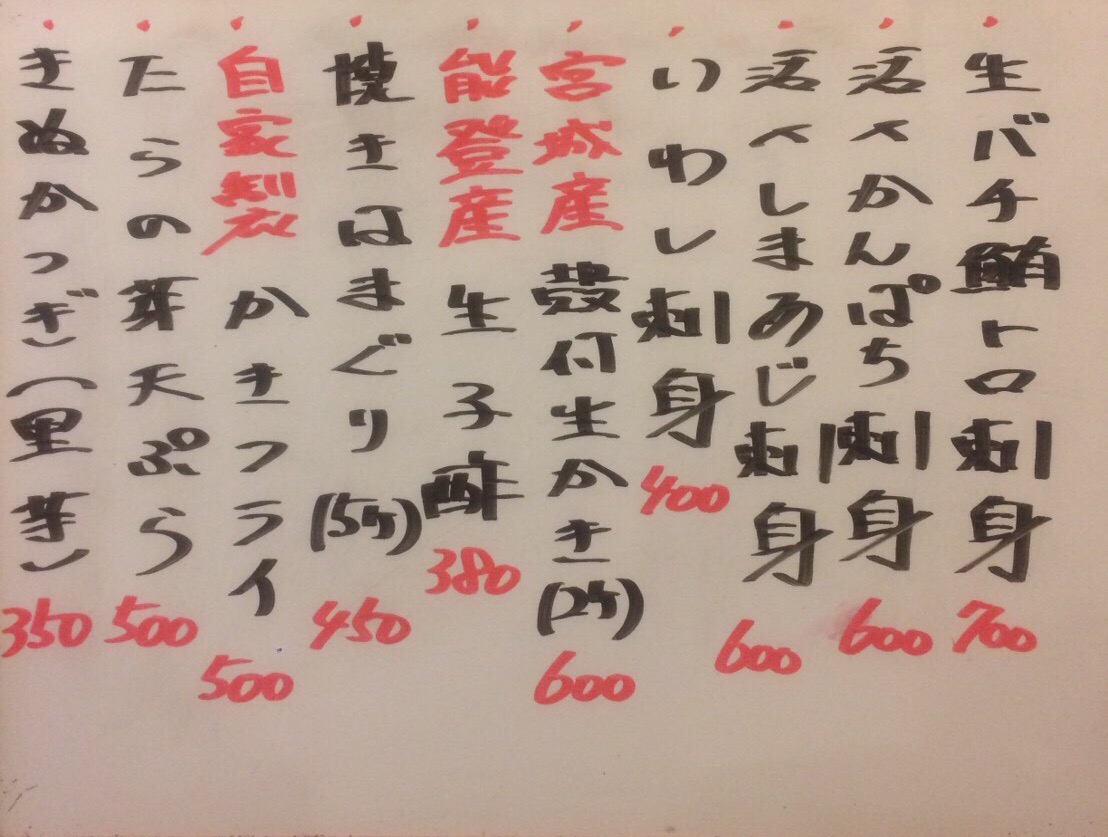 生バチ鮪トロ刺身 700
活〆かんぱち刺身 600
活〆しまあじ刺身 600
いわし刺身 400
宮城産 殻付生かき(2ケ) 600
能登産 生子酢 380
焼きはまぐり (5ケ) 450
自家製 かきフライ 500
たらの芽天ぷら 500
きぬかつぎ(里芋) 350